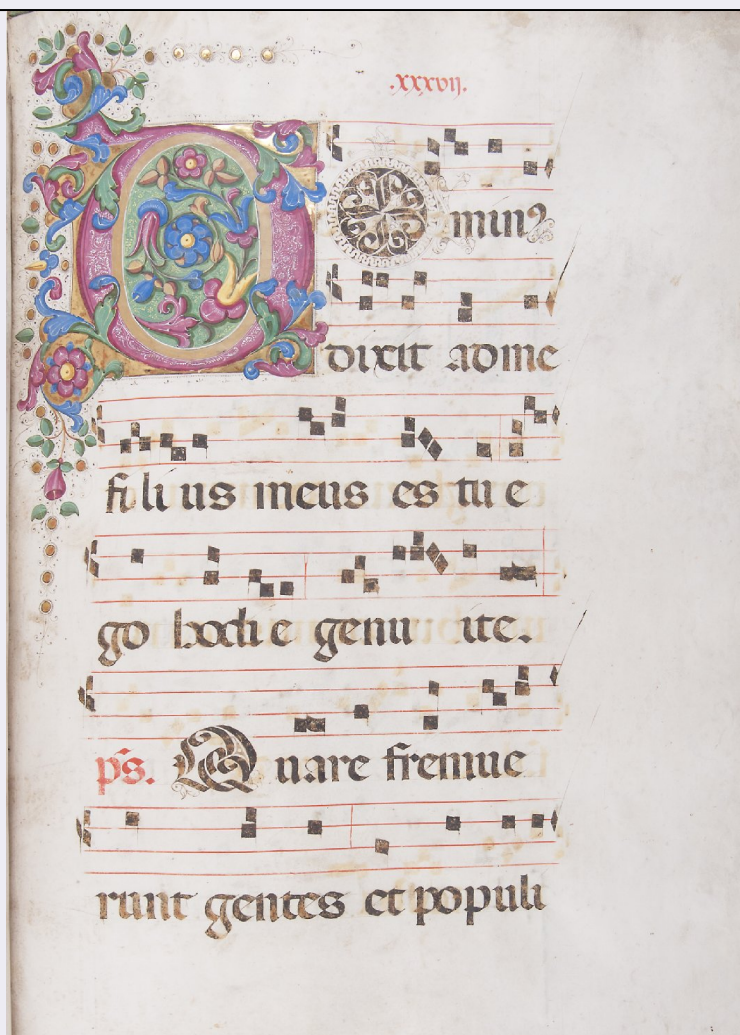 .xxxvij.
DOminꝰ
dixit ad me
fili us meus es tu e
go hodi e genu i te.
ps. Quare fremue
runt gentes et populi